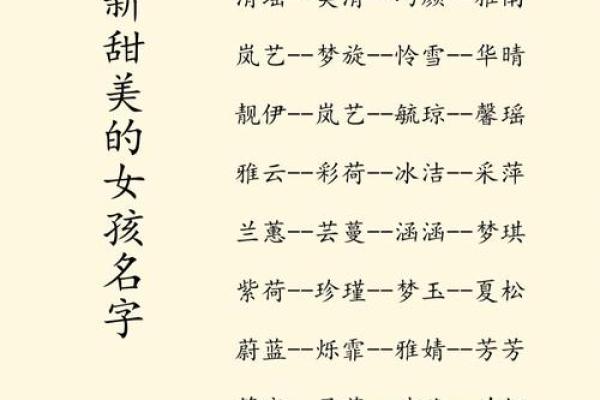 新甜美的女孩名字
岚艺--梦旋--怜雪--华晴
靓伊--岚艺--毓琼--馨瑶
雅云--彩荷--冰洁--采萍
兰蕙--芸蔓--涵涵--梦琪
紫荷--珍瑾--梦玉--夏松
蔚蓝--烁霏--雅婧--芳芳